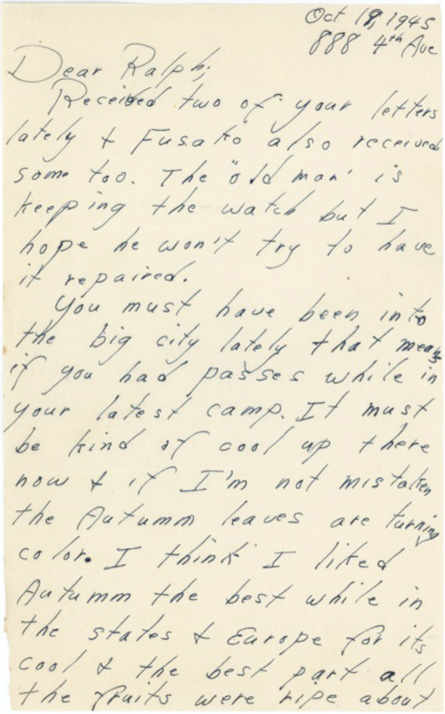 Oct 19, 1945
888 4th Ave
Dear Ralph;
Received two of your letters
lately & Fusako also received
some too. The "old man" is
keeping the watch but I
hope he won't try to have
it repaired.
You must have been into
the big city lately that means
if you had passes while in
your latest camp. It must
be kind of cool up there
now & if I'm not mistaken
the Autumm leaves are turning
color. I think I liked
Autumm the best while in
the states & Europe for its
cool & the best part all
the fruits were ripe about